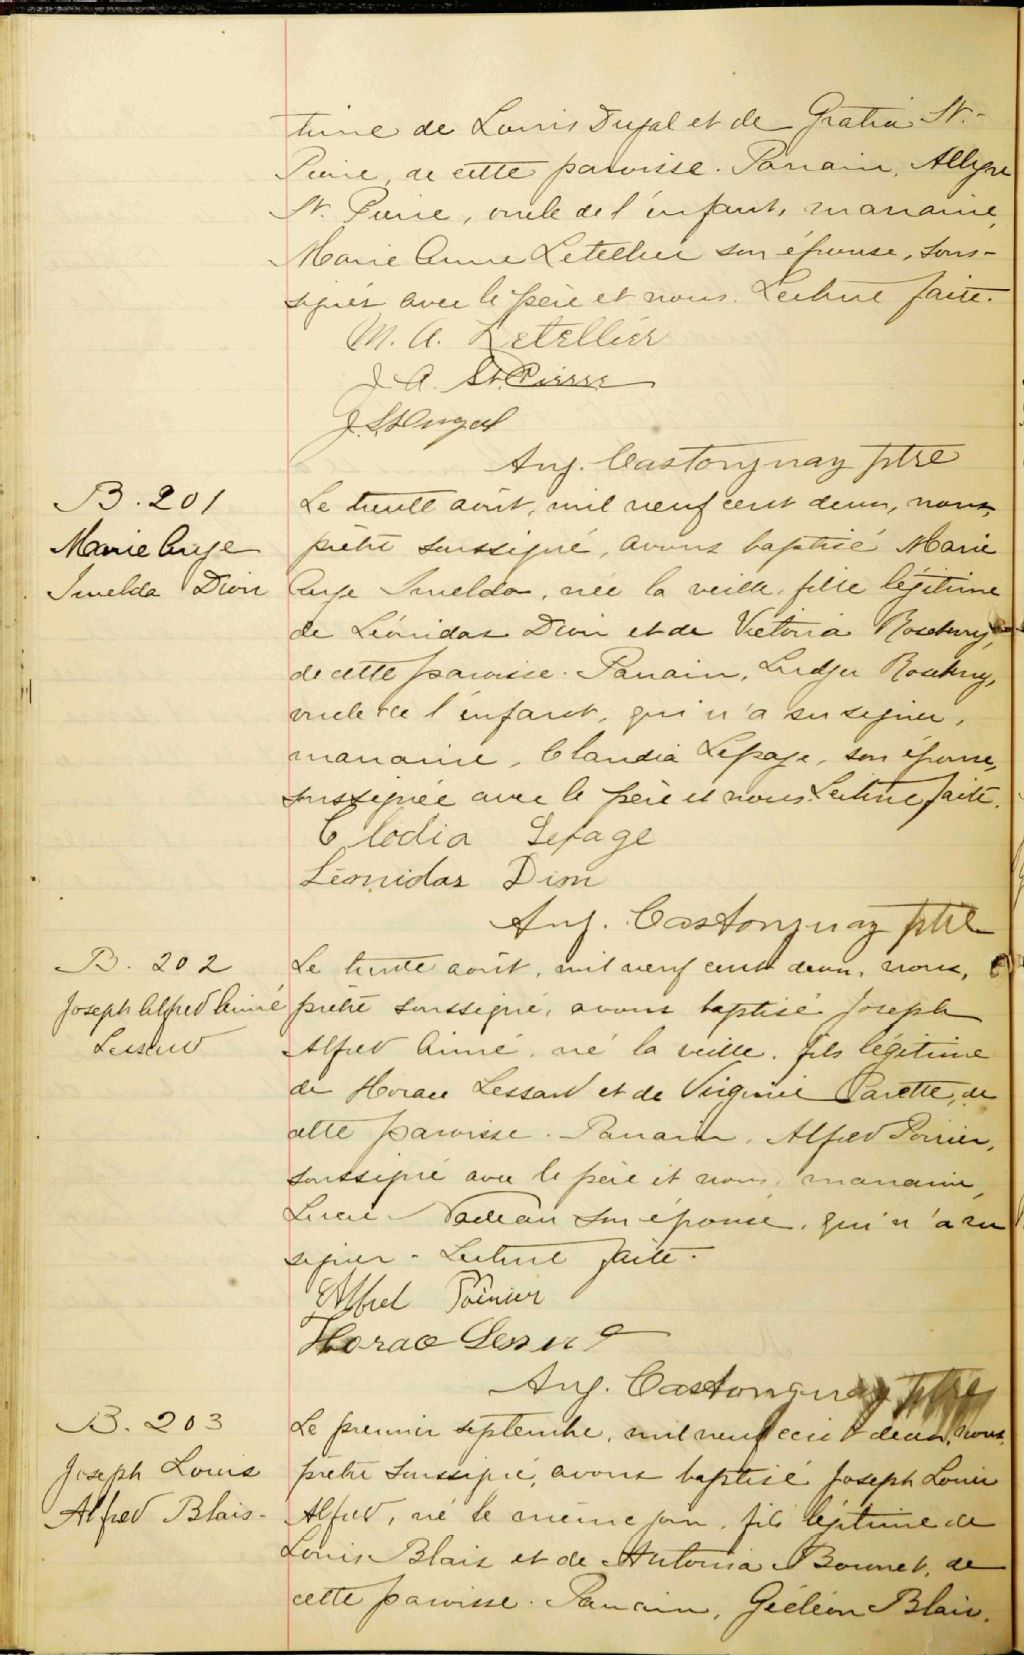 time de Louis Dugal et de Gratia St.-
Pierre, de cette paroisse. Parrain,
St. Pierre, oncle de l'enfant, marraine,
Marie Anne Letellier son épouse, sous-
signés avec le père et nous. Lecture faite.
M. A. Letellier
J. A. St. Pierre
J. L. Dugal
Aug. Castonguay ptre
B. 201
Le trente août, mil neuf cent deux, nous,
Marie Ange
prêtre soussigné, avons baptisé Marie
Imelda Dion
Ange Imelda, née la veille, fille légitime
de Léonidas Dion et de Victoria Rosebery,
de cette paroisse. Parrain, Ludger Rosebery,
oncle de l'enfant, qui n'a su signer,
marraine, Claudia Lepage, son épouse,
soussignée avec le père et nous. Lecture faite.
Clodia Lepage
Léonidas Dion
Aug. Castonguay ptre
B. 202
Le trente août, mil neuf cent deux, nous,
Joseph Alfred Aimé
prêtre soussigné, avons baptisé Joseph
Lessard
Alfred Aimé, né la veille, fils légitime
de Horace Lessard et de Virginie Parette, de
cette paroisse. Parrain, Alfred Poirier,
soussigné avec le père et nous, marraine,
Lucie Nadeau son épouse, qui n'a su
signer. Lecture faite.
Alfred Poirier
Horace Lessard
Aug. Castonguay ptre
B. 203
Le premier septembre, mil neuf cent deux, nous,
Joseph Louis
prêtre soussigné, avons baptisé Joseph Louis
Alfred Blais-
Alfred, né le même jour, fils légitime de
Louis Blais et de Antonia Bonnet, de
cette paroisse. Parrain, Gédéon Blais,